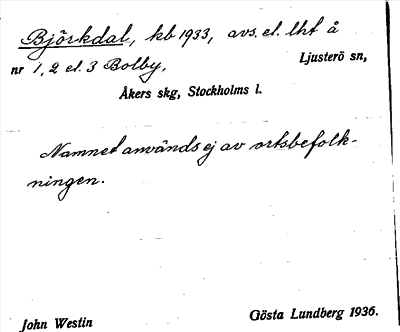 Björkdal, kb 1933, avs. el. lht å
nr 1, 2 el. 3 Bolby, Ljusterö sn,
Åkers skg, Stockholms l.
Namnet används ej av ortsbefolk-
ningen.
John Westin Gösta Lundberg 1936.